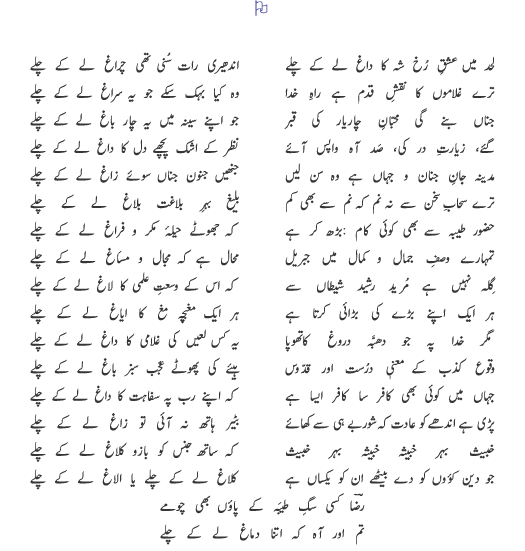 لحد میں عشقِ رُخِ شہ کا داغ لے کے چلے اندھیری رات سُنی تھی چراغ لے کے چلے
ترے غلاموں کا نقشِ قدم ہے راہِ خدا وہ کیا بہک سکے جو یہ سراغ لے کے چلے
جناں بنے گی محبّانِ چاریار کی قبر جو اپنے سینہ میں یہ چار باغ لے کے چلے
گئے، زیارتِ در کی، صد آہ واپس آئے نظر کے اشک پُچھے دل کا داغ لے کے چلے
مدینہ جانِ جنان و جہاں ہے وہ سن لیں جنھیں جنونِ جناں سوئے زاغ لے کے چلے
ترے سحابِ سخن سے نہ نم کہ نم سے بھی کم بلیغ بہرِ بلاغت بلاغ لے کے چلے
حضور طیبہ سے بھی کوئی کام :بڑھ کر ہے کہ جھوٹے حیلۂ مکر و فراغ لے کے چلے
تمہارے وصفِ جمال و کمال میں جبریل محال ہے کہ مجال و مساغ لے کے چلے
گلہ نہیں ہے مُریدِ رشیدِ شیطاں سے کہ اس کے وسعتِ علمی کا لاغ لے کے چلے
ہر ایک اپنے بڑے کی بڑائی کرتا ہے ہر ایک مغبچہ مغ کا ایاغ لے کے چلے
مگر خدا پہ جو دھبّہ دروغ کاتھوپا یہ کس لعیں کی غلامی کا داغ لے کے چلے
وقوعِ کذب کے معنیٰ دُرست اور قدّوس ہیئے کی پھوٹے عجب سبز باغ لے کے چلے
جہاں میں کوئی بھی کافر سا کافر ایسا ہے کہ اپنے رب پہ سفاہت کا داغ لے کے چلے
پڑی ہے اندھے کو عادت کہ شوربے ہی سے کھائے بٹیر ہاتھ نہ آئی تو زاغ لے کے چلے
خبیث بہر خبیثہ خبیثہ بہر خبیث کہ ساتھ جنس کو بازو کلاغ لے کے چلے
جو دین کوّوں کو دے بیٹھے ان کو یکساں ہے کلاغ لے کے چلے یا الاغ لے کے چلے
رضؔا کسی سگِ طیبہ کے پاؤں بھی چومے
تم اور آہ کہ اتنا دماغ لے کے چلے